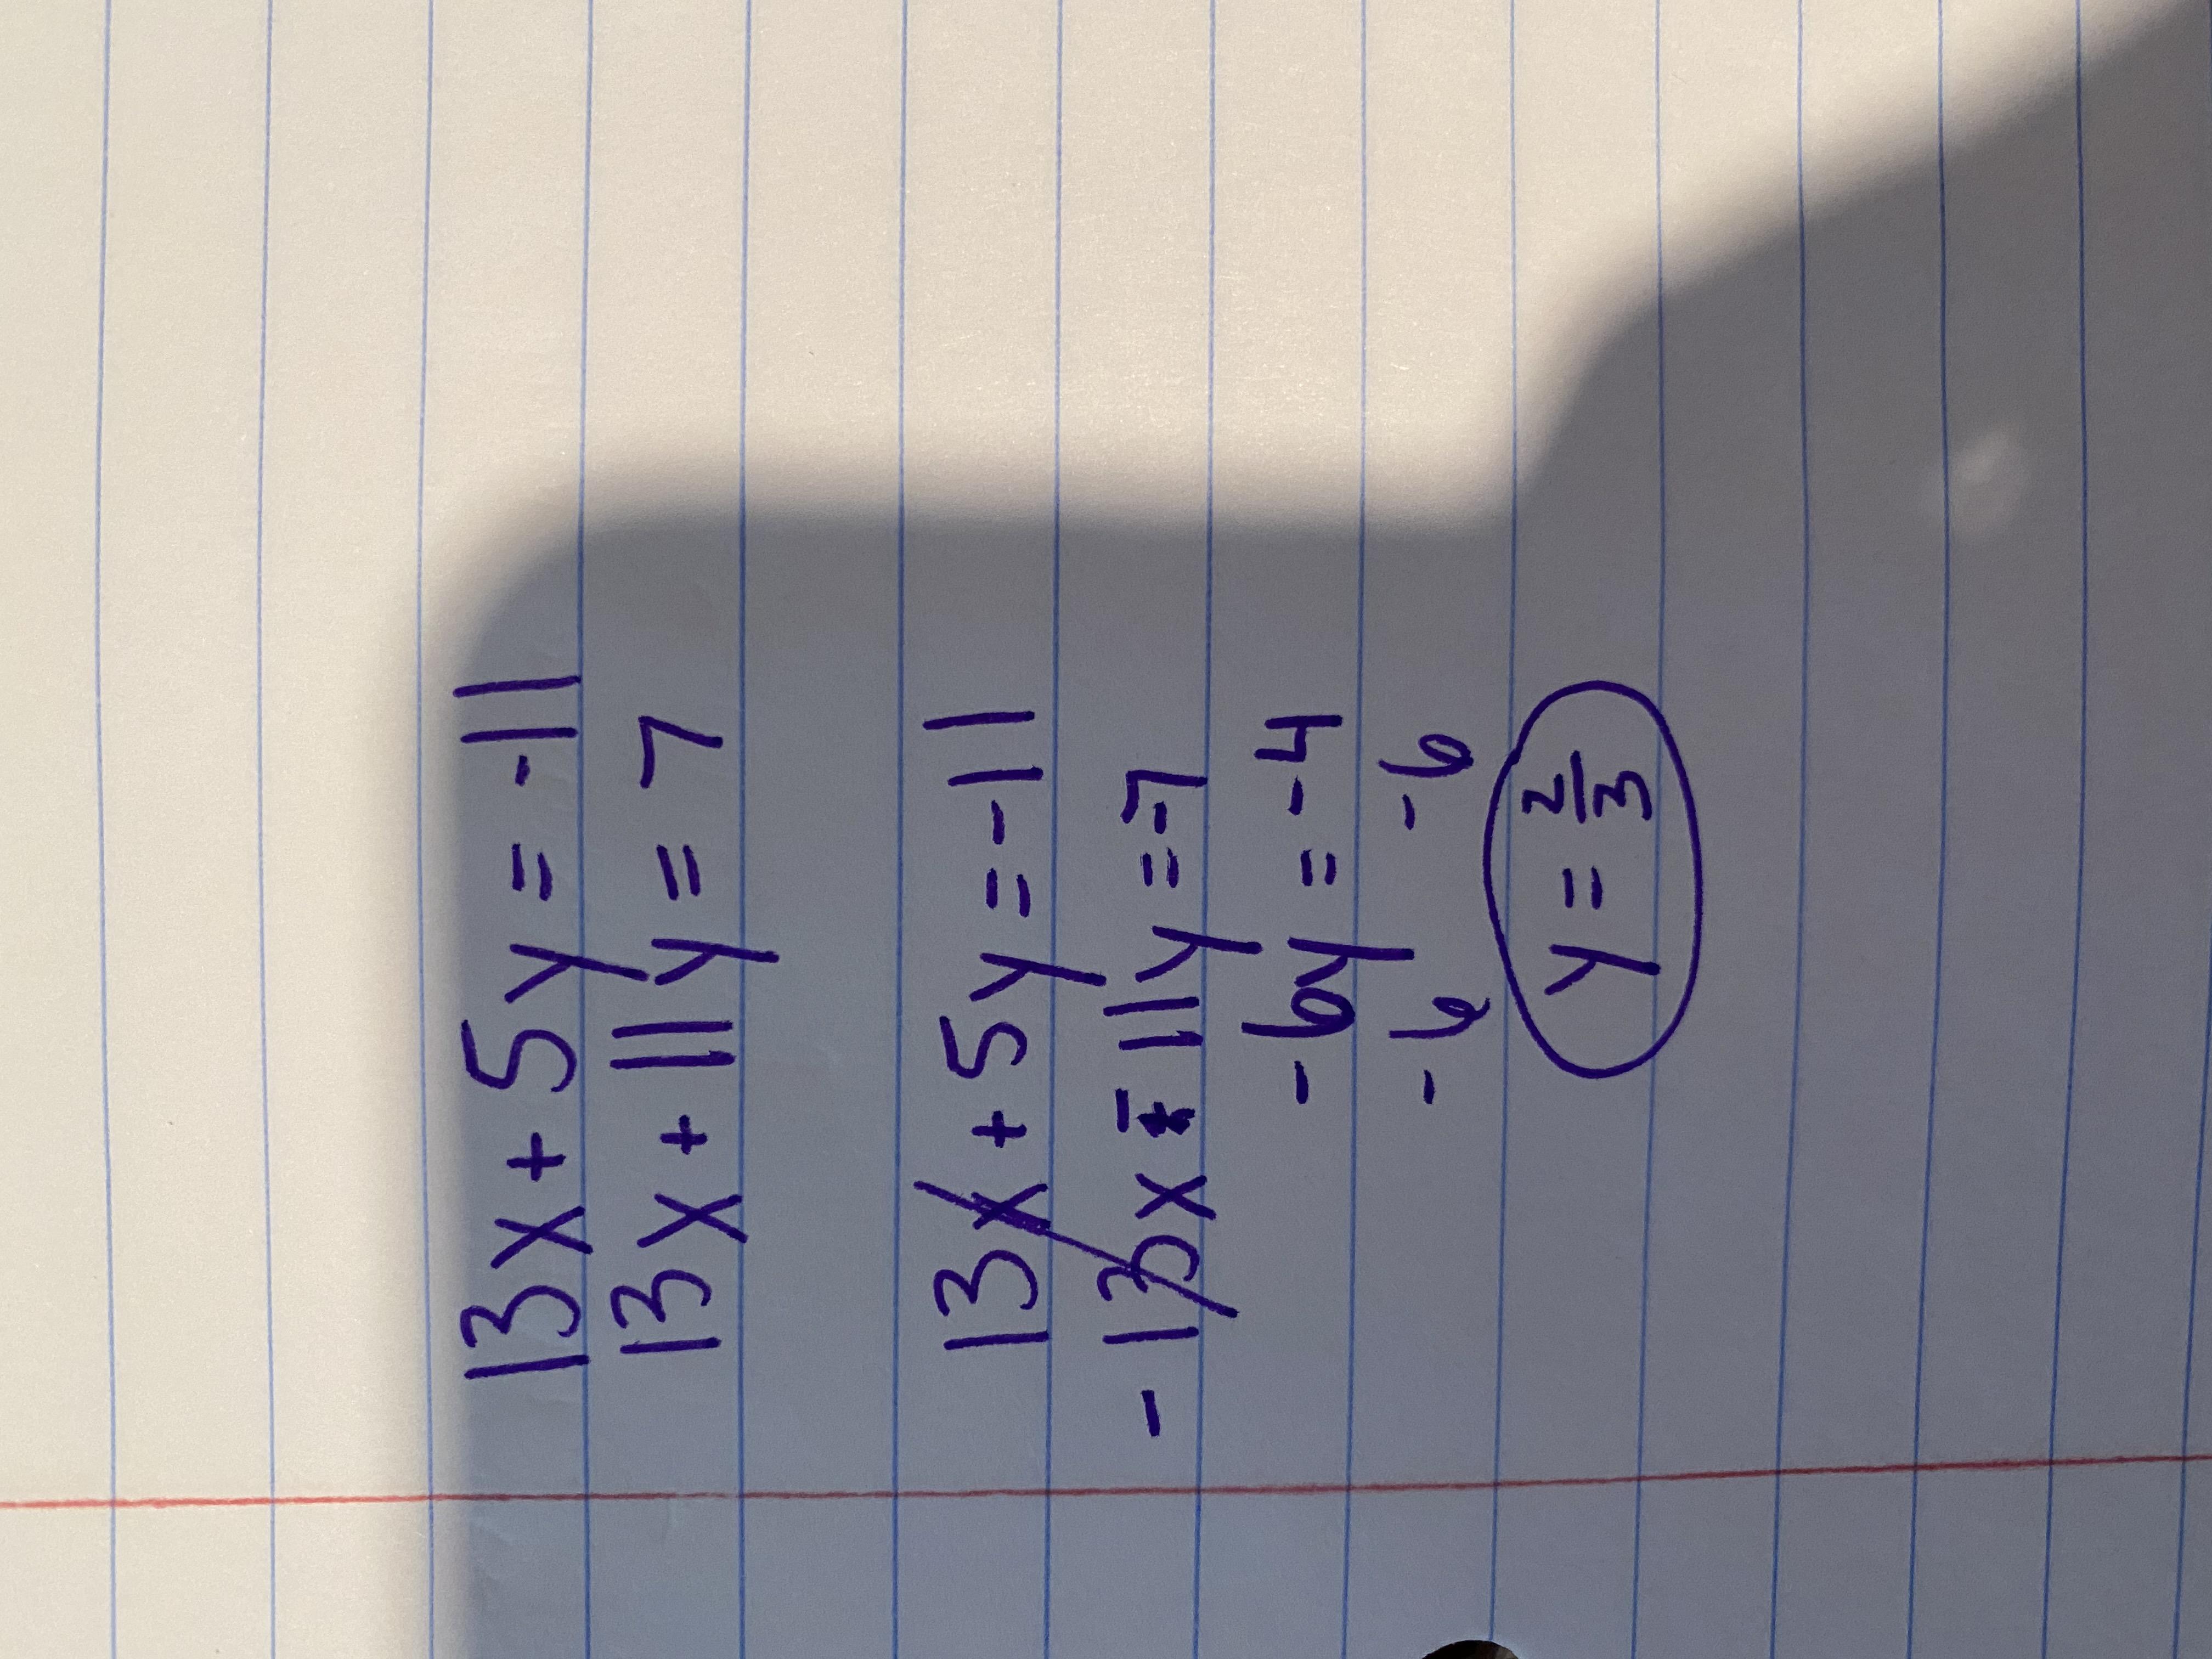 13x + 5y = -11
13x + 11y = 7
13x + 5y = -11
-13x - 11y = -7
-6y = -4
-6 -6
y = 2/3